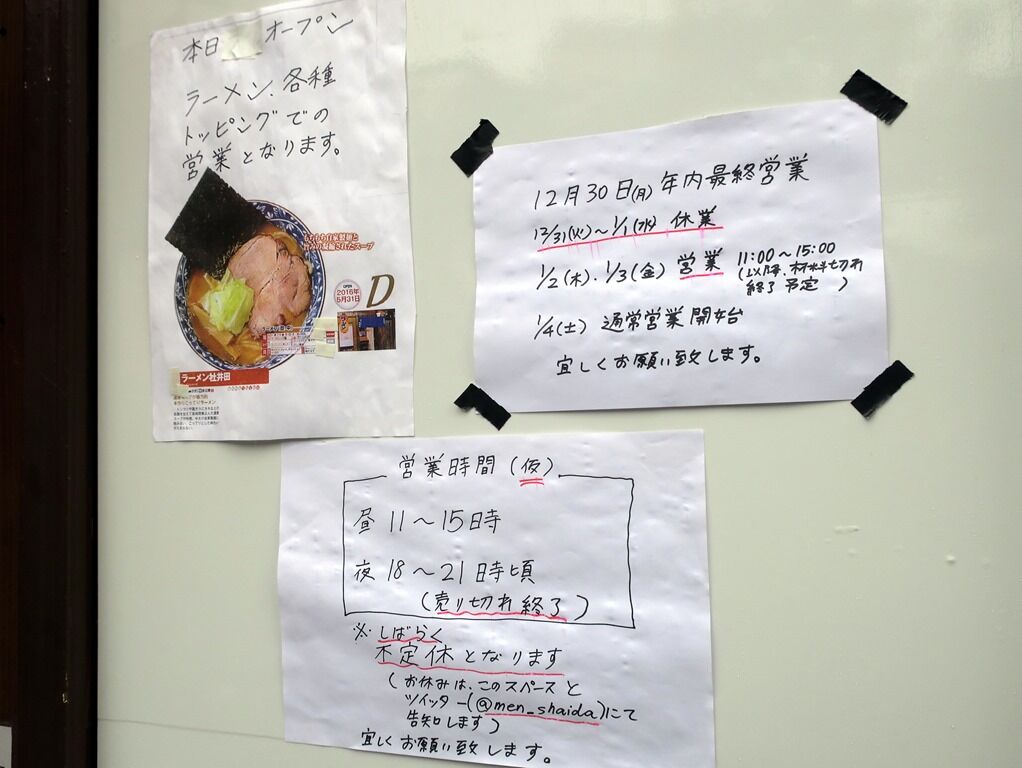 本日 オープン
ラーメン、各種
トッピングでの
営業となります。
もちもち自家製麺と
旨みの凝縮されたスープ
OPEN
2016年
5月31日
D
ラーメン社井田
12月30日(月) 年内最終営業
12/31(火)～1/1(水) 休業
1/2(木)・1/3(金) 営業 11:00～15:00
(以降、材料切れ
終了予定)
1/4(土) 通常営業開始
宜しくお願い致します。
営業時間(仮)
昼 11～15時
夜 18～21時頃
(売り切れ終了)
※しばらく
不定休となります
(お休みは、このスペースと
ツイッター(@men_shaida)にて
告知します)
宜しくお願い致します。